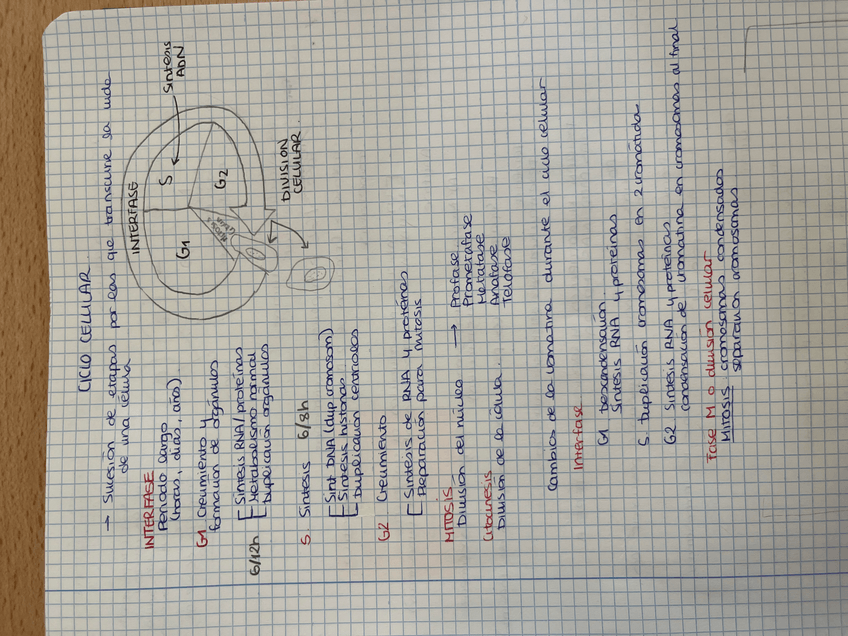 CICLO CELULAR
→ Sucesión de etapas por las que transcurre la vida
de una célula
INTERFASE
Periodo largo
(horas, días, año).
G1 Crecimiento y
formación de orgánulos
6/12h
Síntesis RNA/proteínas
Metabolismo normal
Duplicación orgánulos
S Síntesis 6/8h
Sínt DNA (dup cromosom)
Síntesis histonas
Duplicación centriolos
G2 Crecimiento
Síntesis de RNA y proteínas
Preparación para mitosis
INTERFASE
S
G1
G2
Síntesis
ADN
DIVISIÓN
CELULAR.
MITOSIS
División del núcleo → Profase
Prometafase
Metafase
Anafase
Telofase
Citocinesis
División de la célula.
Cambios de la cromatina durante el ciclo celular
Interfase
G1 Descondensación
Síntesis RNA y proteínas
S Duplicación cromosomas en 2 cromátida
G2 Síntesis RNA y proteínas
condensación de cromatina en cromosomas al final
Fase M o división celular
Mitosis cromosomas condensados
separación cromosomas